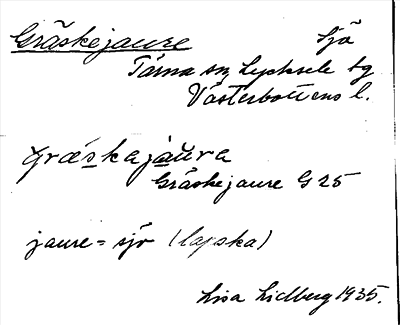 Gräskejaure Sjö
Tärna sn, Lycksele tg
Västerbottens l.
græskajàura
Gräskejaure G 25
jaure = sjö (lapska)
Lisa Lidberg 1935.